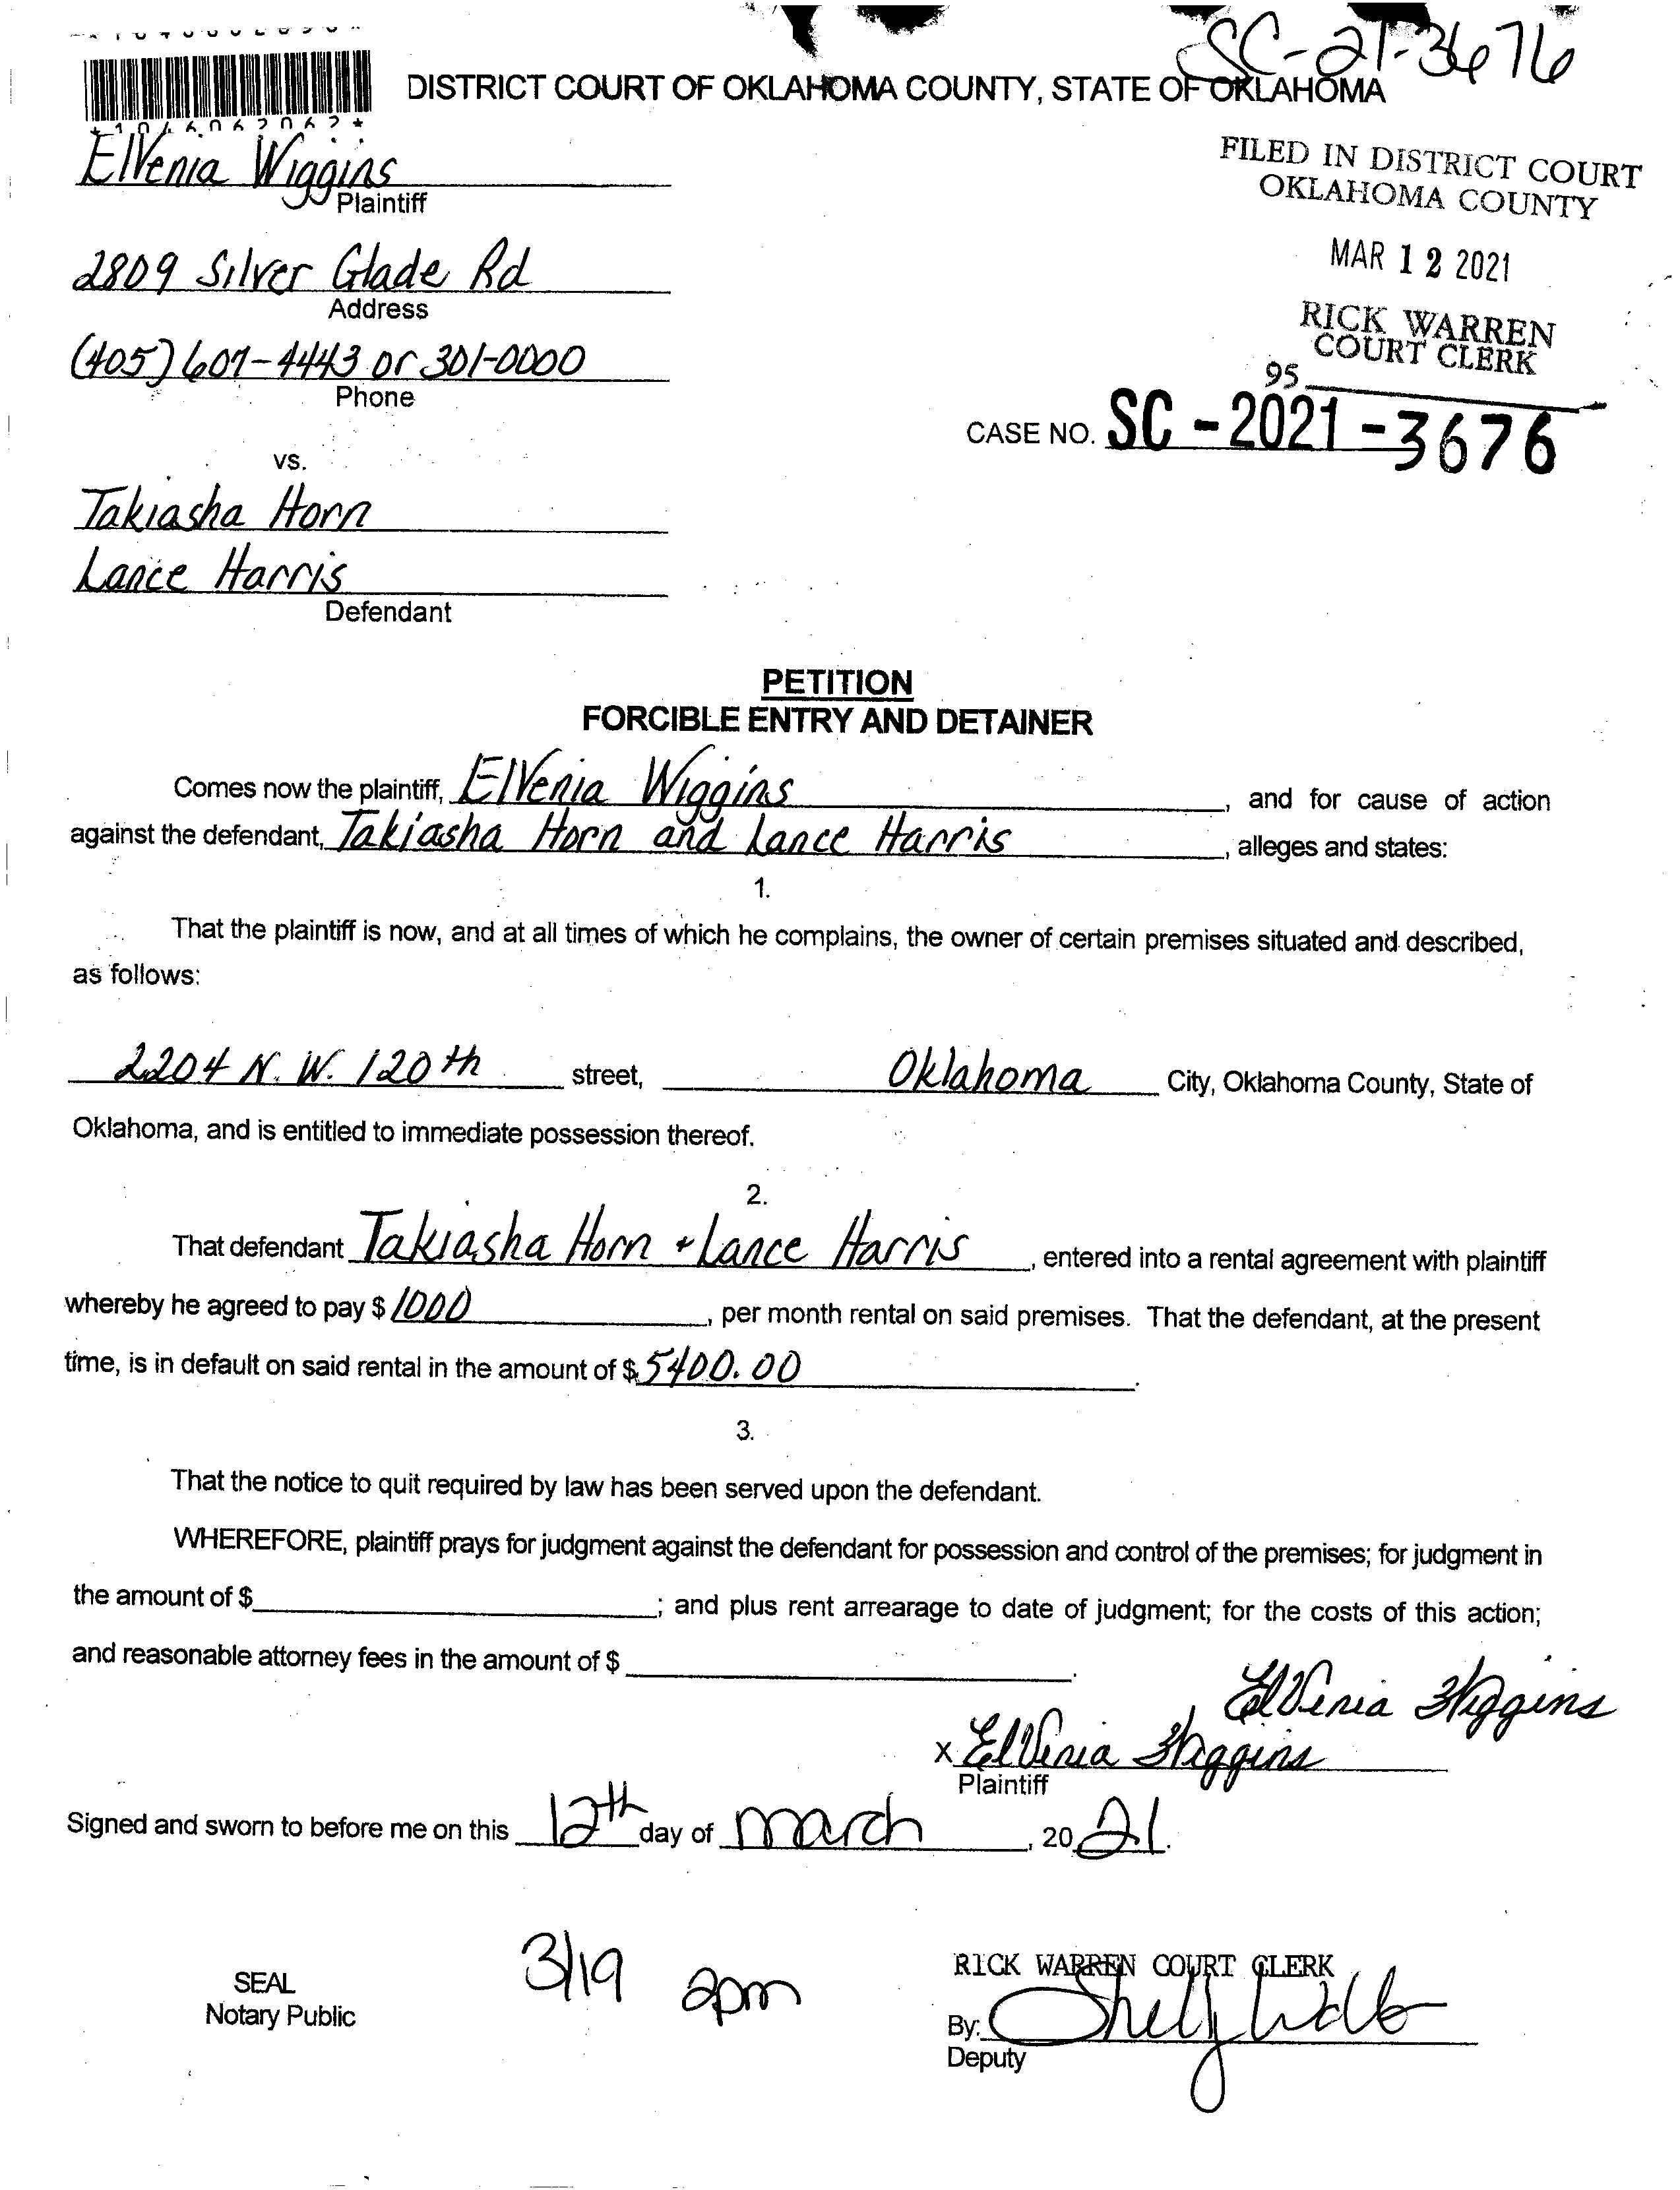 SC-21-3676
DISTRICT COURT OF OKLAHOMA COUNTY, STATE OF OKLAHOMA
*1046062062*
ElVenia Wiggins
Plaintiff
FILED IN DISTRICT COURT
OKLAHOMA COUNTY
2809 Silver Glade Rd
Address
MAR 12 2021
(405) 607-4443 or 301-0000
Phone
RICK WARREN
COURT CLERK
95
CASE NO. SC-2021-3676
vs.
Takiasha Horn
Lance Harris
Defendant
PETITION
FORCIBLE ENTRY AND DETAINER
Comes now the plaintiff, ElVenia Wiggins, and for cause of action
against the defendant, Takiasha Horn and Lance Harris, alleges and states:
1.
That the plaintiff is now, and at all times of which he complains, the owner of certain premises situated and described,
as follows:
2204 N. W. 120th street, Oklahoma City, Oklahoma County, State of
Oklahoma, and is entitled to immediate possession thereof.
2.
That defendant Takiasha Horn + Lance Harris, entered into a rental agreement with plaintiff
whereby he agreed to pay $ 1000, per month rental on said premises. That the defendant, at the present
time, is in default on said rental in the amount of $ 5400.00.
3.
That the notice to quit required by law has been served upon the defendant.
WHEREFORE, plaintiff prays for judgment against the defendant for possession and control of the premises; for judgment in
the amount of $; and plus rent arrearage to date of judgment; for the costs of this action;
and reasonable attorney fees in the amount of $.
ElVenia Wiggins
X ElVenia Wiggins
Plaintiff
Signed and sworn to before me on this 12th day of March, 2021.
3/19 2pm
RICK WARREN COURT CLERK
SEAL
Notary Public
By:
Deputy